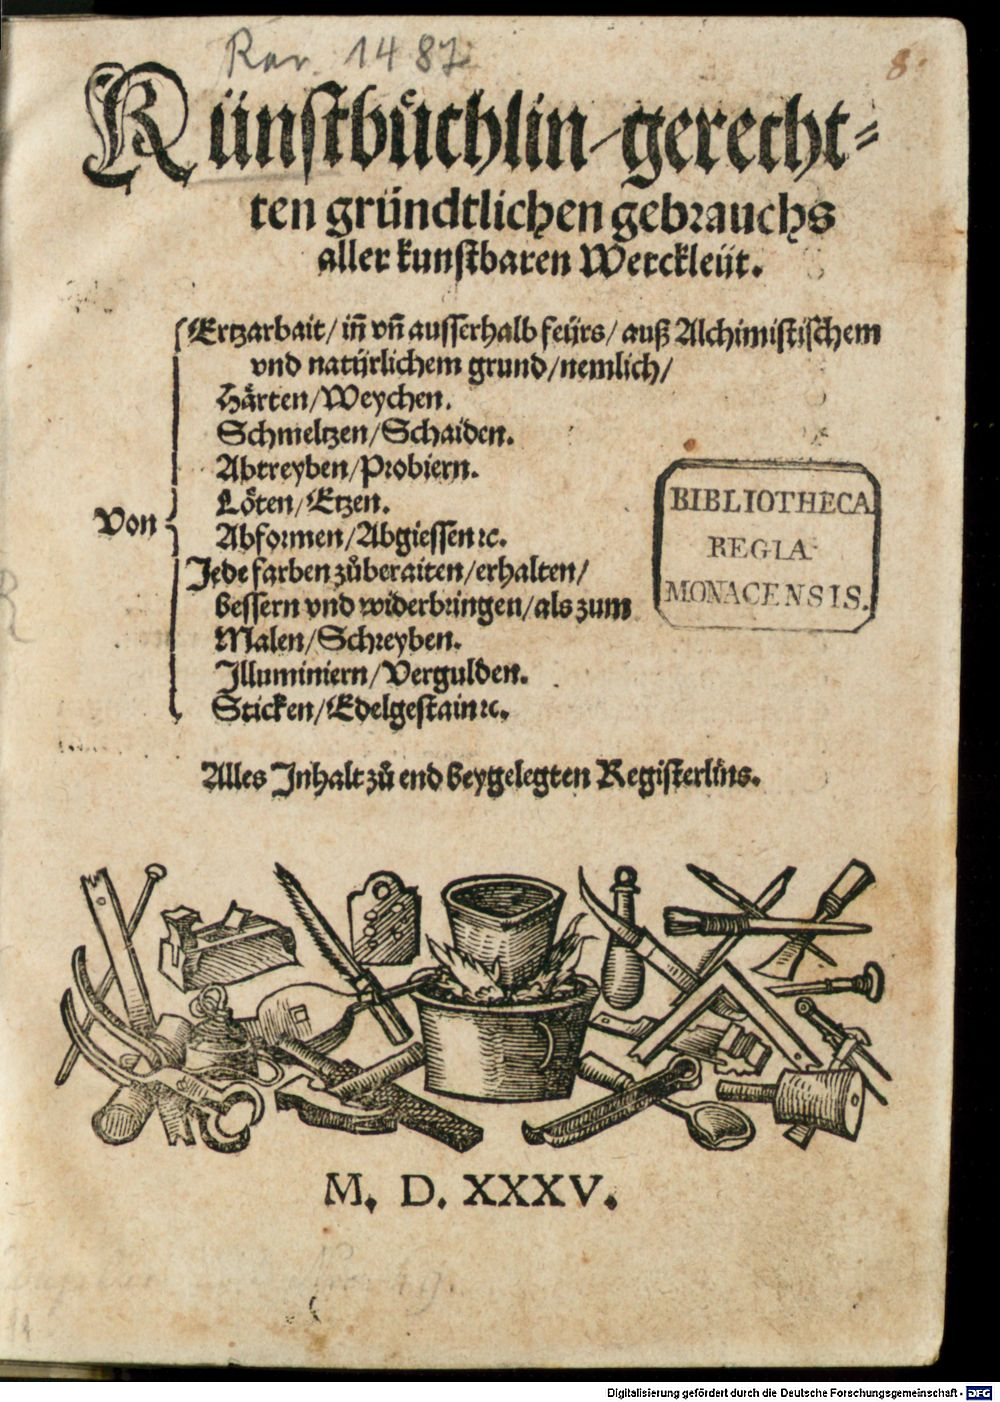 Rar. 1487
8.
Künstbůchlin / gerecht-
ten gründtlichen gebrauchs
aller kunstbaren Werckleüt.
Ertzarbait / iñ vñ ausserhalb feürs / auß Alchimistischem
vnd natürlichem grund / nemlich /
Härten / Weychen.
Schmeltzen / Schaiden.
Abtreyben / Probiern.
Löten / Etzen.
Von
Abformen / Abgiessen ꝛc.
Jede farben zůberaiten / erhalten /
bessern vnd widerbringen / als zum
Malen / Schreyben.
Illuminiern / Vergulden.
Sticken / Edelgestain ꝛc.
BIBLIOTHECA
REGIA
MONACENSIS.
Alles Inhalt zů end beygelegten Registerlins.
M. D. XXXV.
Digitalisierung gefördert durch die Deutsche Forschungsgemeinschaft - DFG